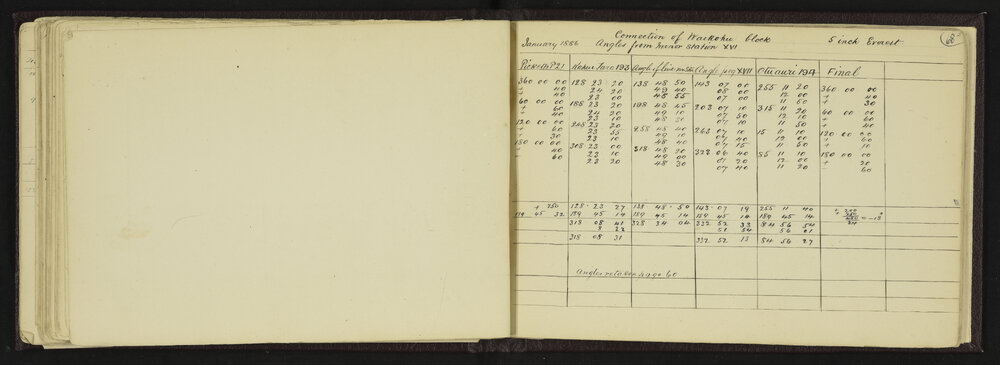 Connection of Waikohu block 5 inch Everest 68
January 1886 Angles from minor station XVI
Final
360 00 00 128 23 20 138 48 50 143 07 00 255 11 20 360 00 00
+ 40 24 20 49 40 08 00 12 00 + 40
+ 40 23 00 48 55 07 00 11 00 + 30
60 00 00 188 23 20 198 48 45 203 07 10 315 11 20 60 00 00
+ 60 24 20 49 10 07 50 12 10 + 60
+ 40 23 10 48 30 07 10 11 50 + 40
120 00 00 248 23 20 258 48 40 263 07 10 15 11 10 120 00 00
+ 60 23 55 49 10 07 40 12 00 + 60
+ 30 23 10 48 40 07 15 11 50 + 10
180 00 00 308 23 00 318 48 20 323 06 40 85 11 10 180 00 00
+ 40 23 10 49 00 07 20 12 00 + 20
60 23 20 48 30 07 40 11 20 60
+ 250 128 23 27 138 48 50 143 07 19 255 11 40
189 45 32 189 45 14 189 45 14 189 45 14 189 45 14
318 08 41 328 34 04 332 52 33 84 56 54
8 22 51 54 56 01
318 08 31 332 52 13 84 56 27
Angles retaken page 60